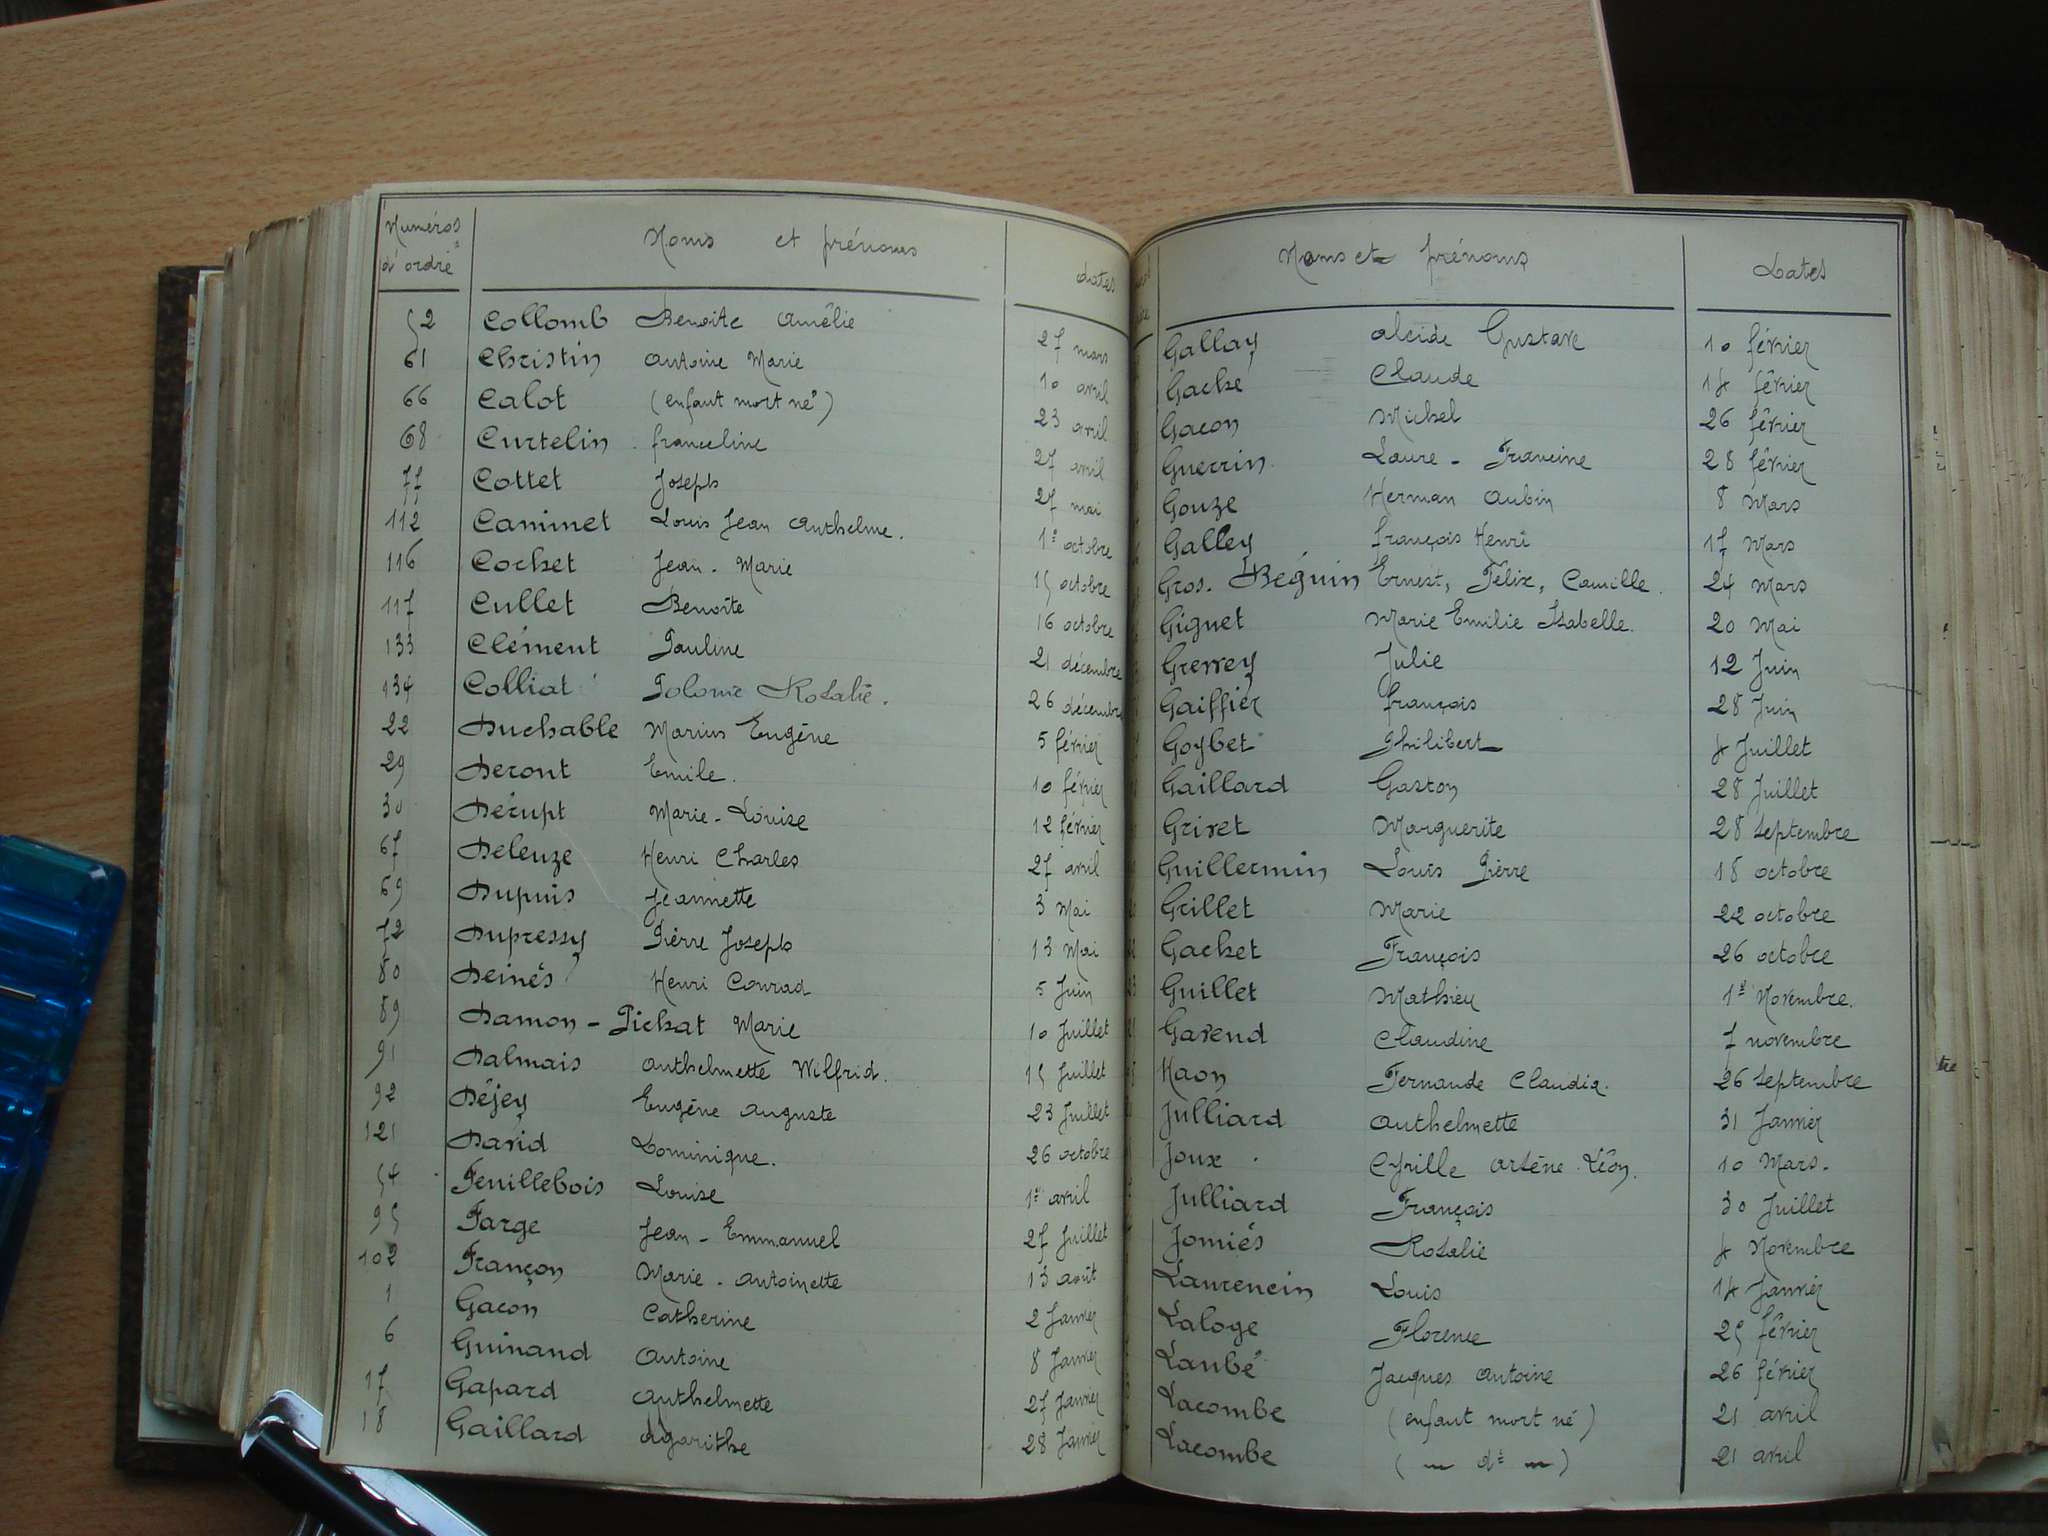 Numéros d'ordre Noms et prénoms dates
52 Collomb Benoîte Amélie 27 mars
61 Christin Antoine Marie 10 avril
66 Calot (enfant mort né) 23 avril
68 Curtelin franceline 27 avril
77 Cottet Joseph 27 mai
112 Caminet Louis Jean Anthelme. 1er octobre
116 Cochet Jean-Marie 15 octobre
117 Cullet Benoîte 16 octobre
133 Clément Pauline 21 décembre
134 Colliat Polonie Rosalie. 26 décembre
22 Duchable Marius Eugène 5 février
29 Deront Emile. 10 février
30 Dérupt Marie-Louise 12 février
67 Deleuze Henri Charles 27 avril
69 Dupuis Jeannette 3 Mai
72 Dupressy Pierre Joseph 13 Mai
80 Deinès Henri Conrad 5 Juin
89 Damon-Pichat Marie 10 Juillet
91 Dalmais Anthelmette Wilfrid. 15 Juillet
92 Déjey Eugène Auguste 23 Juillet
121 David Dominique. 26 octobre
54 Feuillebois Louise 1er avril
95 Farge Jean-Emmanuel 27 Juillet
102 Françon Marie-Antoinette 13 août
1 Gacon Catherine 2 Janvier
6 Guinand Antoine 8 Janvier
17 Gapard Anthelmette 27 Janvier
18 Gaillard Agarithe 28 Janvier
Noms et prénoms Dates
Gallay Alcide Gustave 10 février
Gaché Claude 14 février
Gacon Michel 26 février
Guerrin Laure-Francine 28 février
Gouze Herman Aubin 8 Mars
Galley François Henri 17 Mars
Gros-Béguin Ernest, Félix, Camille. 24 Mars
Giguet Marie Emilie Isabelle. 20 Mai
Grerrey Julie 12 Juin
Gaiffier François 28 Juin
Goybet Philibert 4 Juillet
Gaillard Gaston 28 Juillet
Grivet Marguerite 28 septembre
Guillermin Louis Pierre 18 octobre
Grillet Marie 22 octobre
Gachet François 26 octobre
Guillet Mathieu 1er Novembre.
Gavend Claudine 7 novembre
Haon Fernande Claudia. 26 septembre
Julliard Anthelmette 31 Janvier
Joux Cyrille Arsène Léon. 10 Mars.
Julliard François 30 Juillet
Jomiés Rosalie 4 Novembre
Laurencin Louis 14 Janvier
Laloge Florence 25 février
Laubé Jacques Antoine 26 février
Lacombe (enfant mort né) 21 avril
Lacombe (— d° —) 21 avril